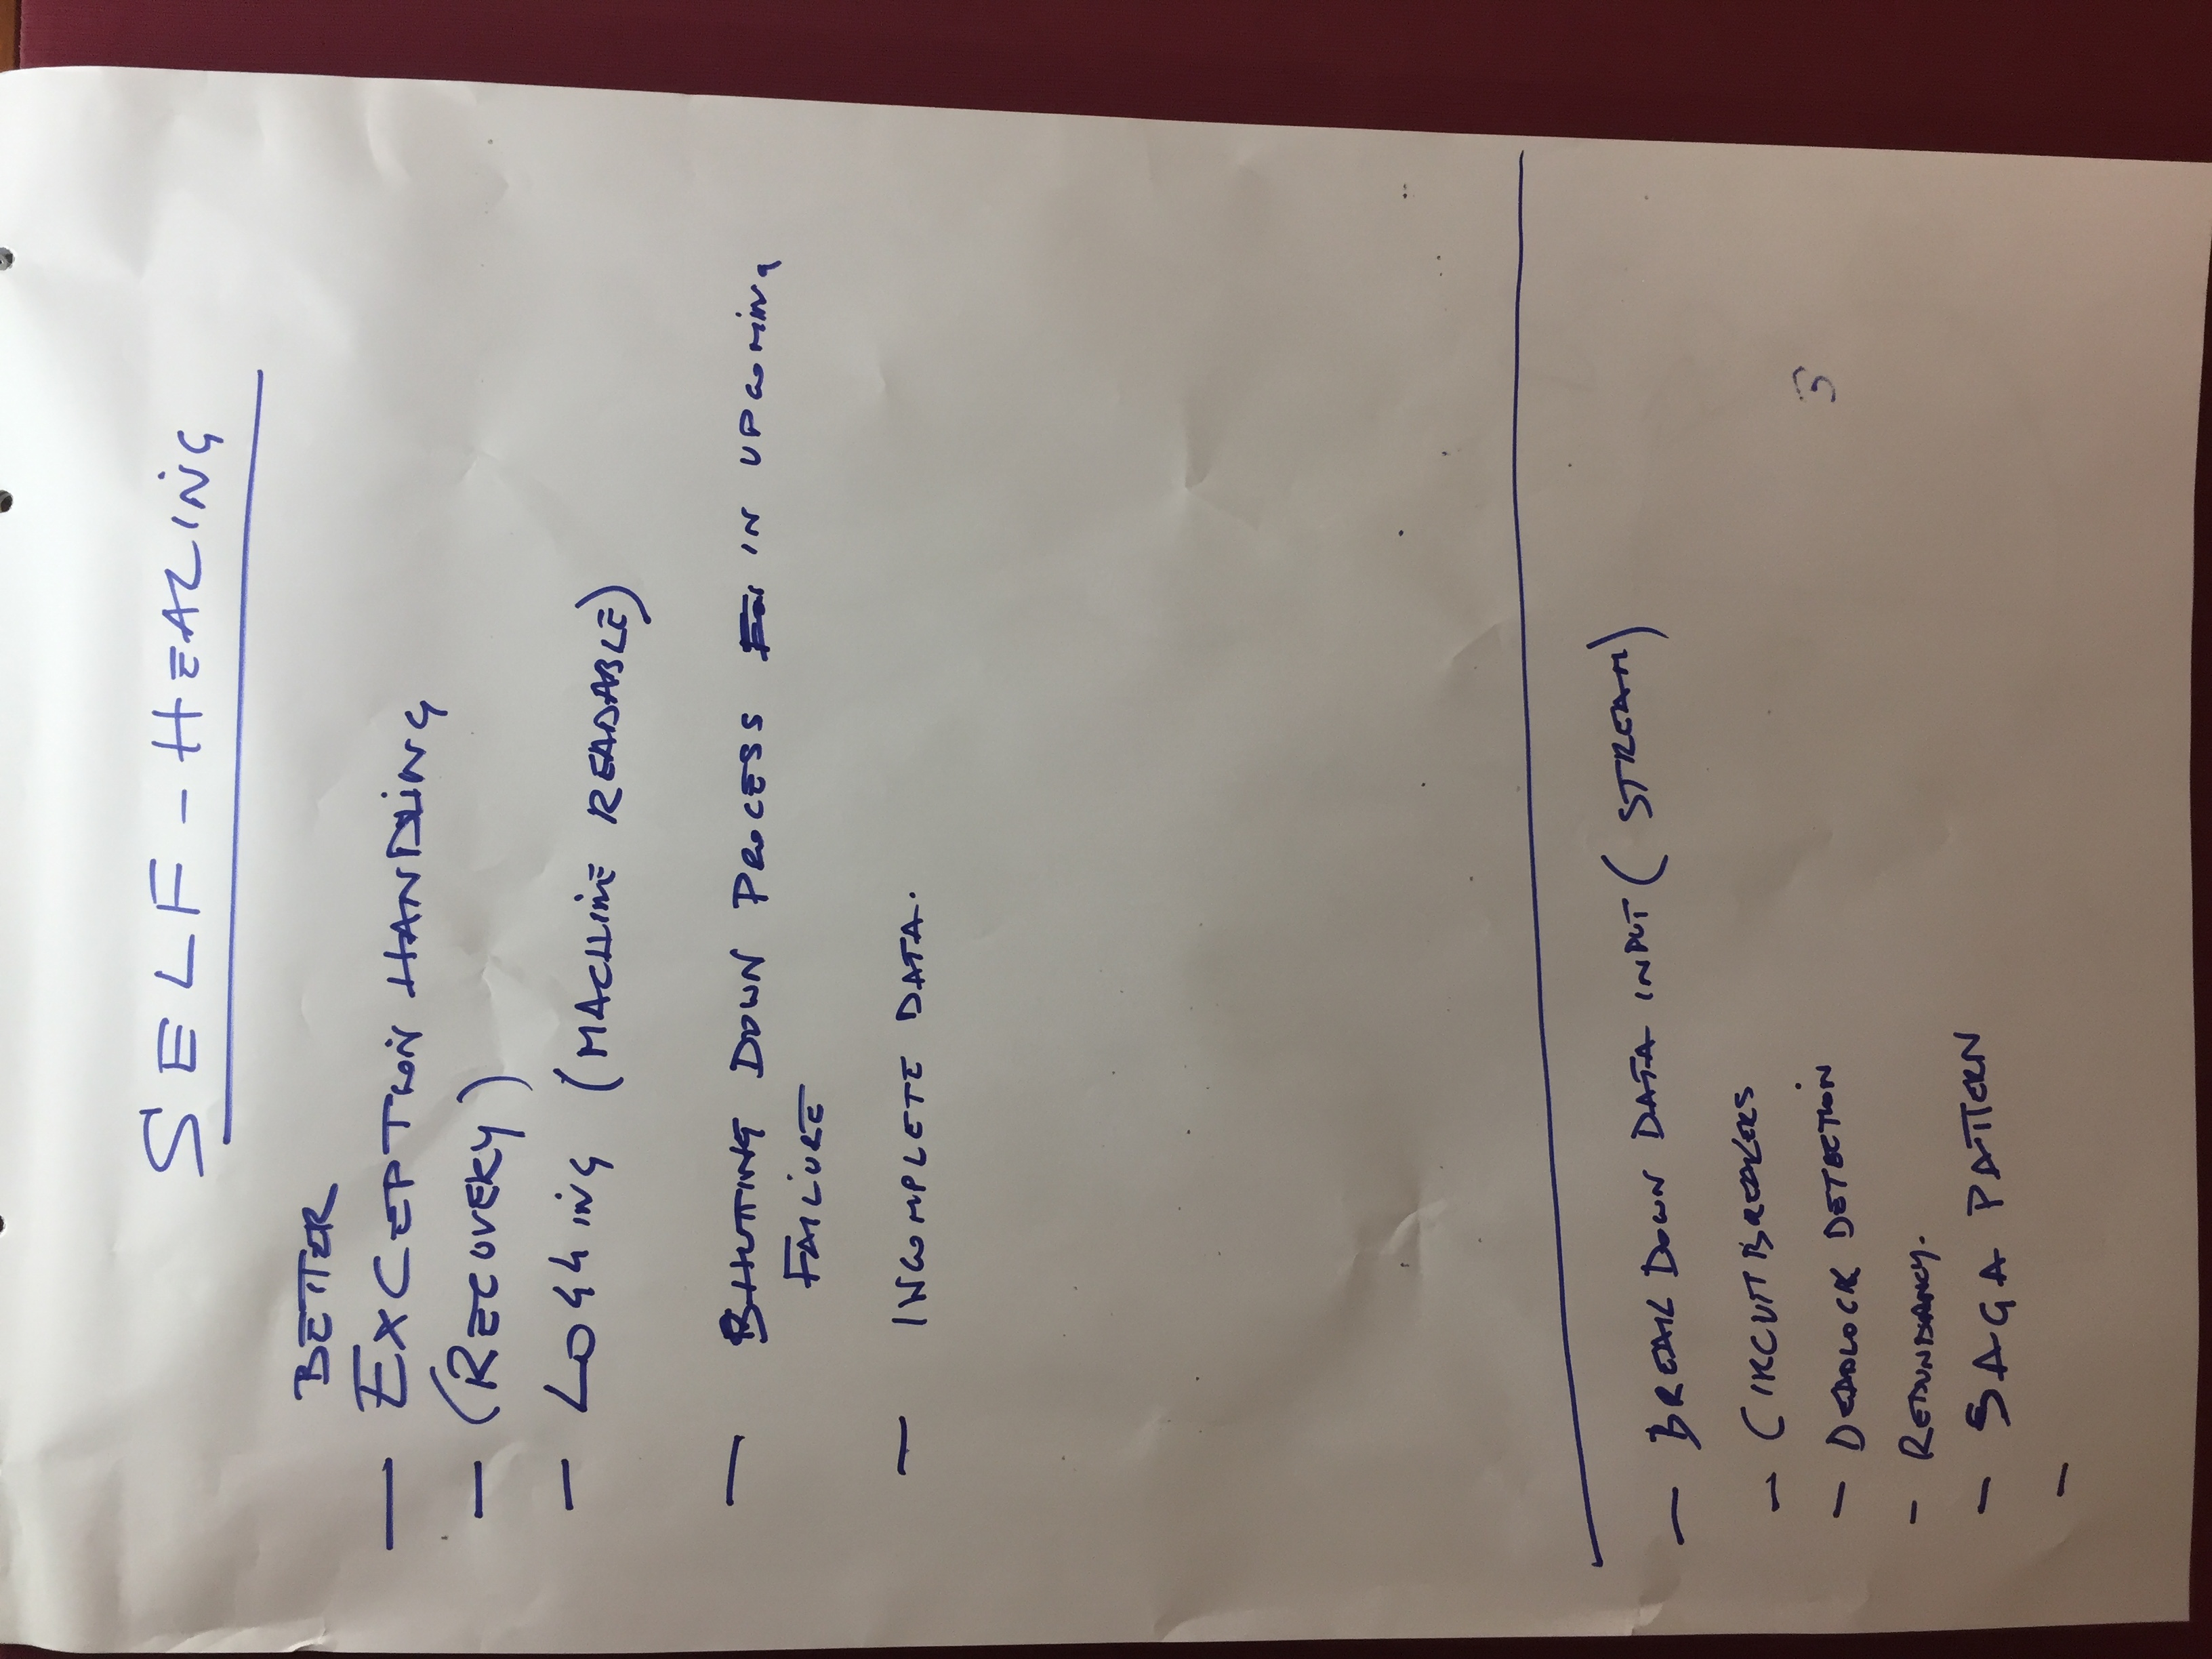 SELF-HEALING
BETTER
— EXCEPTION HANDLING
— (RECOVERY)
— LOGGING (MACHINE READABLE)
— SHUTTING DOWN PROCESS IN UPCOMING
FAILURE
— INCOMPLETE DATA.
— BREAK DOWN DATA INPUT (STREAM)
— CIRCUITBREAKERS
— DEADLOCK DETECTION
— REDUNDANCY.
— SAGA PATTERN
—
3